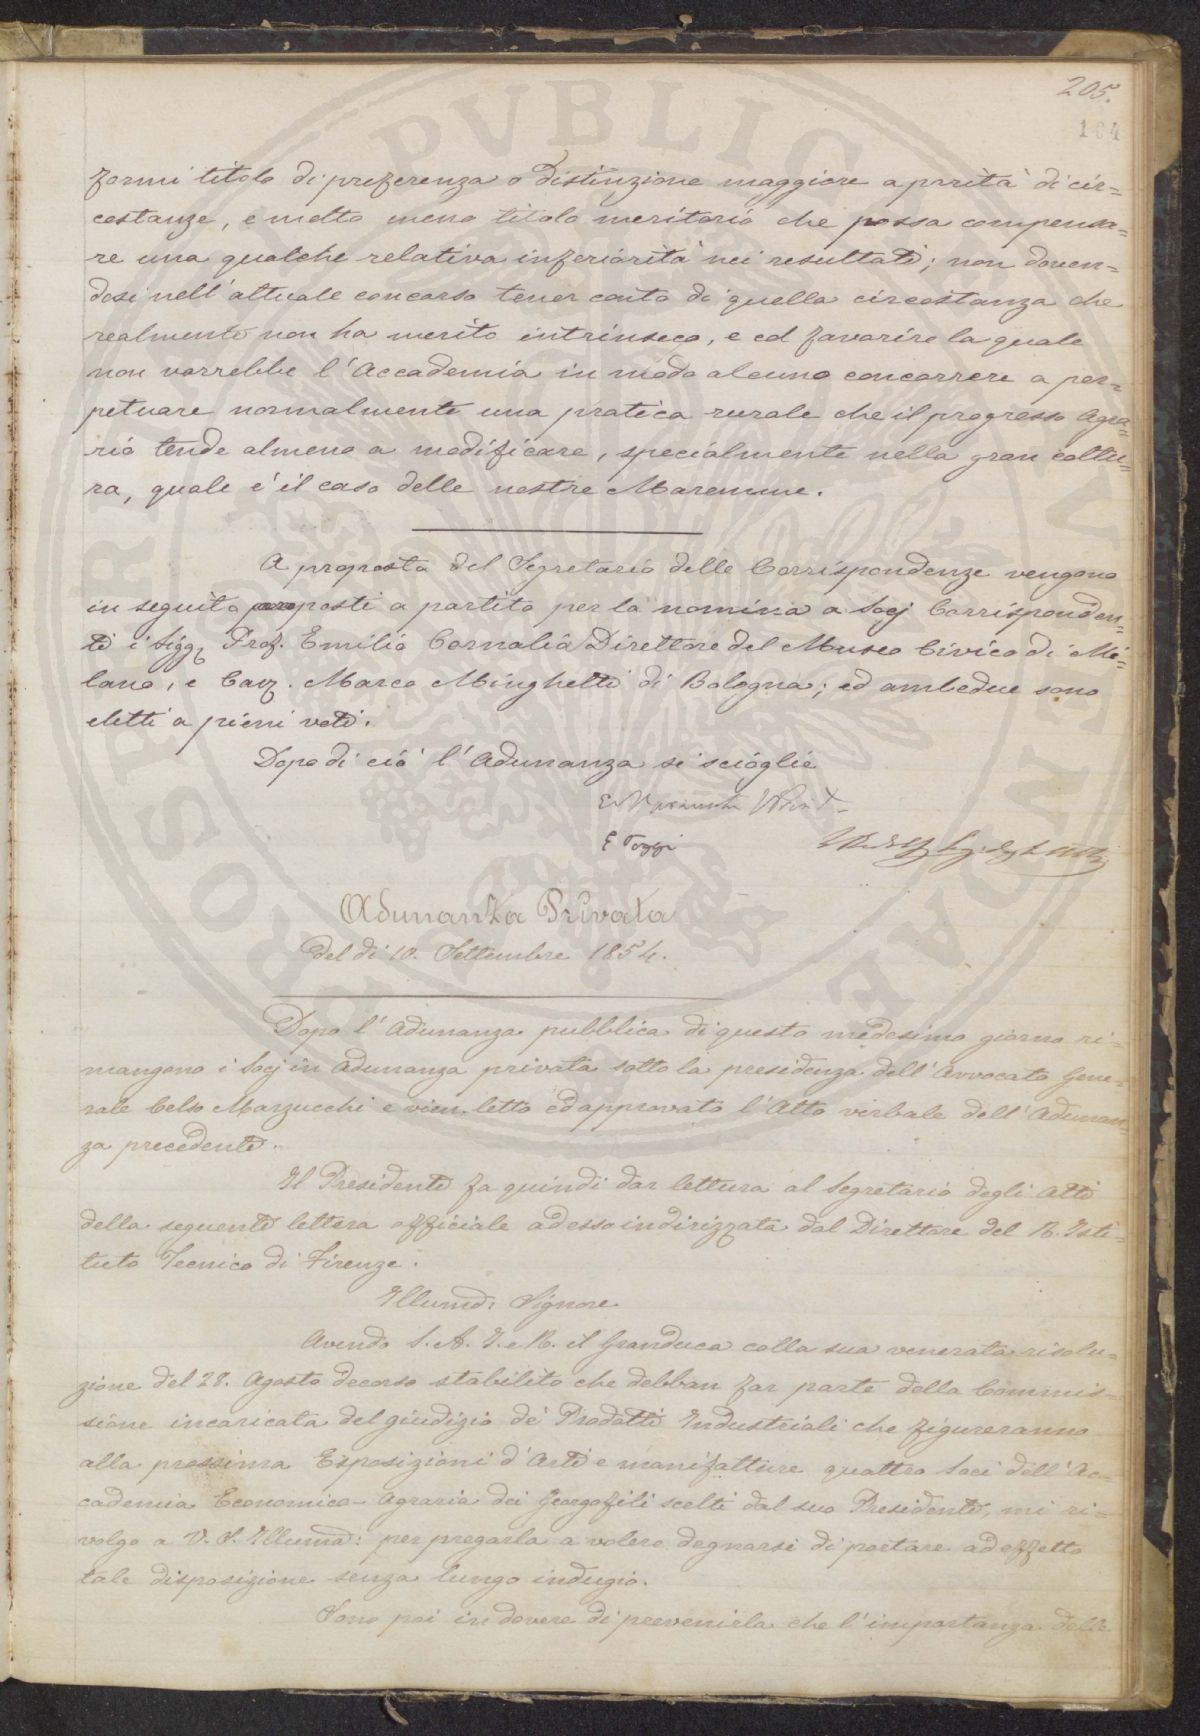 205.
104
formi titolo di preferenza o distinzione maggiore a parità di cir=
costanze, e molto meno titolo meritorio che possa compensa=
re una qualche relativa inferiorità nei resultati; non doven=
dosi nell'attuale concorso tener conto di quella circostanza che
realmente non ha merito intrinseco, e ed favorire la quale
non vorrebbe l'Accademia in modo alcuno concorrere a per=
petuare normalmente una pratica rurale che il progresso Agra=
rio tende almeno a modificare, specialmente nella gran coltu=
ra, quale è il caso delle nostre Maremme.
A proposta del Segretario delle Corrispondenze vengono
in seguito proposti a partito per la nomina a Socj Corrisponden=
ti i Sigg. Prof. Emilio Cornalia Direttore del Museo Civico di Mi=
lano, e Cav. Marco Minghetti di Bologna; ed ambedue sono
eletti a pieni voti.
Dopo di ciò l'Adunanza si scioglie
E Poggi
Adunanza Privata
Del dì 10. Settembre 1854.
Dopo l'Adunanza pubblica di questo medesimo giorno ri=
mangono i Socj in Adunanza privata sotto la presidenza dell'Avvocato Gene=
rale Celso Marzucchi e vien letto ed approvato l'Atto verbale dell'Adunan=
za precedente.
Il Presidente fa quindi dar lettura al Segretario degli Atti
della seguente lettera officiale ad esso indirizzata dal Direttore del R. Isti=
tuto Tecnico di Firenze.
Illumo: Signore
Avendo S. A. I. e R. il Granduca colla sua venerata risolu=
zione del 28. Agosto decorso stabilito che debban far parte della Commis=
sione incaricata del giudizio de' Prodotti Industriali che figureranno
alla prossima Esposizioni d'Arti e manifatture quattro Soci dell'Ac=
cademia Economico-Agraria dei Georgofili scelti dal suo Presidente, mi ri=
volgo a V. S. Illuma: per pregarla a volere degnarsi di portare ad effetto
tale disposizione senza lungo indugio.
Sono poi in dovere di prevenirla che l'importanza delle